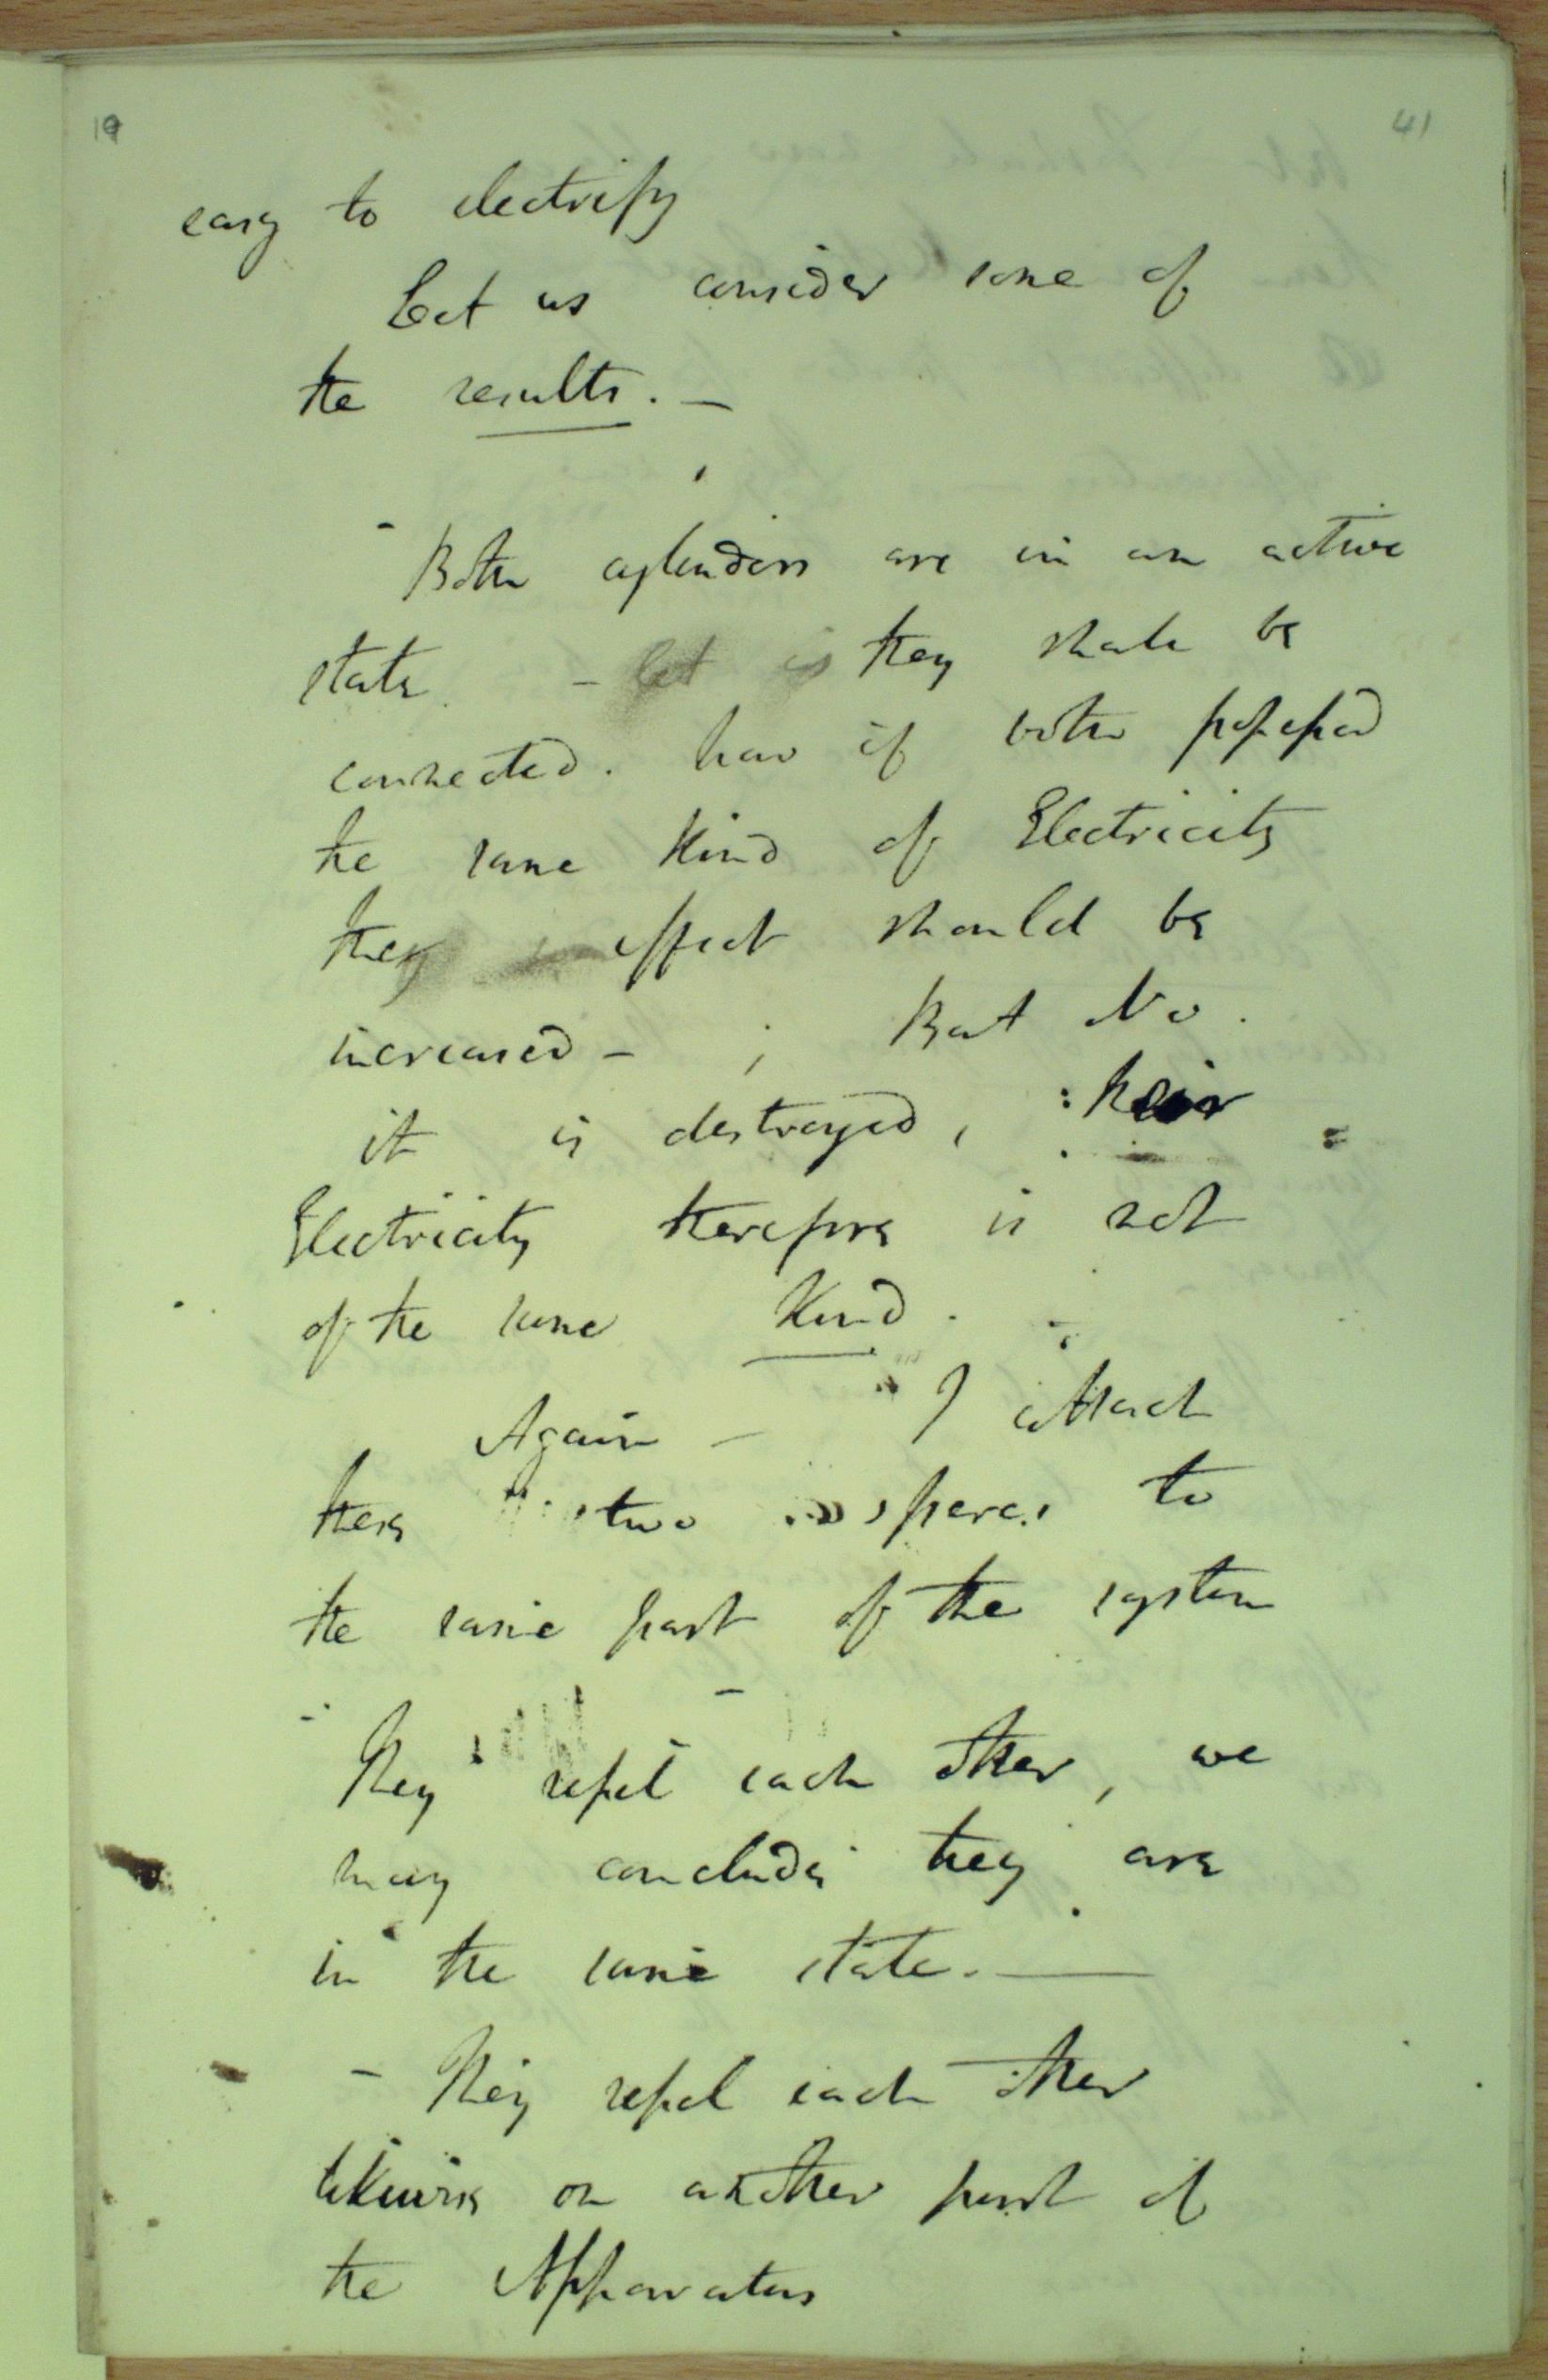 19 41
easy to electrify
Let us consider some of
the results. —
- Both cylinders are in an active
state - let us they shall be
connected. Now if both possessed
the same Kind of Electricity
they effect should be
increased - ; But No.
it is destroyed, : Their
Electricity therefore is not
of the same Kind. -
Again — I attach
these two spheres to
the same part of the system
- They repel each other, we
may conclude they are
in the same state. —
- They repel each other
likewise on another part of
the Apparatus